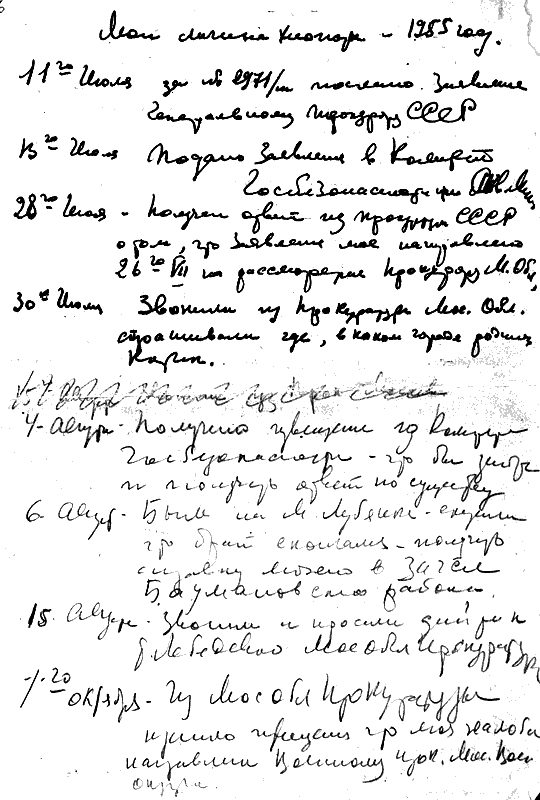 Мои личные хлопоты - 1955 год.
11го Июля за № 2971/м послано Заявление
Генеральному прокурору СССР
13го Июля Подано Заявление в Комитет
Госбезопасности при
28го Июля - Получен ответ из прокур СССР
о том, что Заявление мое направлено
26го VII на рассмотрение Прокурору М. Обл,
30го Июля Звонили из Прокуратуры Мос. Обл.
спрашивали где, в каком городе родился
4 - Август - Получено извещение из Комитета
Госбезопасности - что бы
и получить ответ по существу
6 Август - Была на М Лубянке - сказали
что брат скончался - получить
справку можно в Загсе
Баумановского района.
15. Август - Звонили и просили
Мособлпрокуратуру
7го октября - Из Мособлпрокуратуры
пришло извещение что моя жалоба
направлена Военному прок. Мос. Воен
округа.